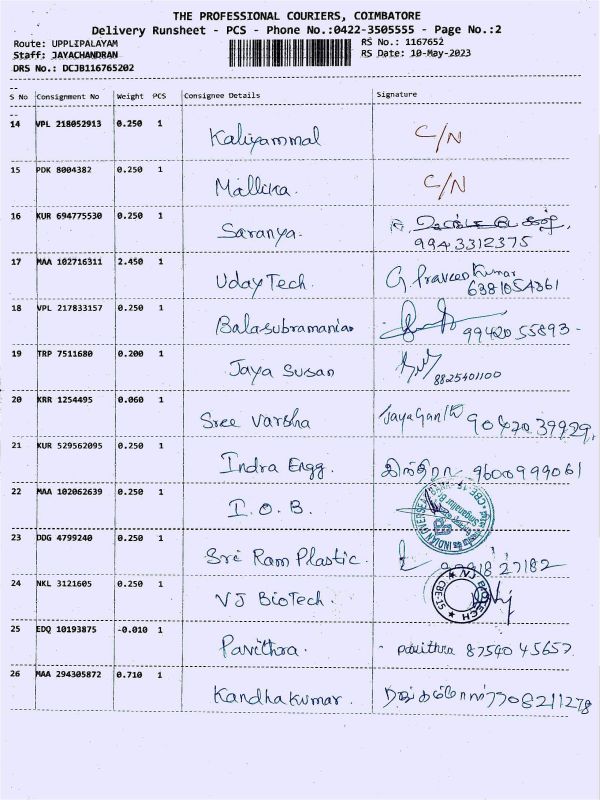 THE PROFESSIONAL COURIERS, COIMBATORE
Delivery Runsheet - PCS - Phone No.:0422-3505555 - Page No.:2
Route: UPPLIPALAYAM RS No.: 1167652
Staff: JAYACHANDRAN RS Date: 10-May-2023
DRS No.: DCJB116765202
S No Consignment No Weight PCS Consignee Details Signature
14 VPL 218052913 0.250 1 Kaliyammal C/N
15 PDK 8004382 0.250 1 Mallika. C/N
16 KUR 694775530 0.250 1 Saranya.
9943312375
17 MAA 102716311 2.450 1 Uday Tech. G. Praveen Kumar
6381054361
18 VPL 217833157 0.250 1 Balasubramanian 9942055893 -
19 TRP 7511680 0.200 1 Jaya Susan
8825401100
20 KRR 1254495 0.060 1 Sree Varsha Jayaganth 9047039929,
21 KUR 529562095 0.250 1 Indra Engg. இந்திரா - 9600999061
22 MAA 102062639 0.250 1 I. O. B.
23 DDG 4799240 0.250 1 Sri Ram Plastic.
24 NKL 3121605 0.250 1 VJ BioTech. VJ BIOTECH
25 EDQ 10193875 -0.010 1 Pavithra. - pavithra 8754045657.
26 MAA 294305872 0.710 1 Kandhakumar. 7708211278